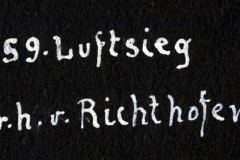 59. Luftsieg
r.h.v. Richthofen